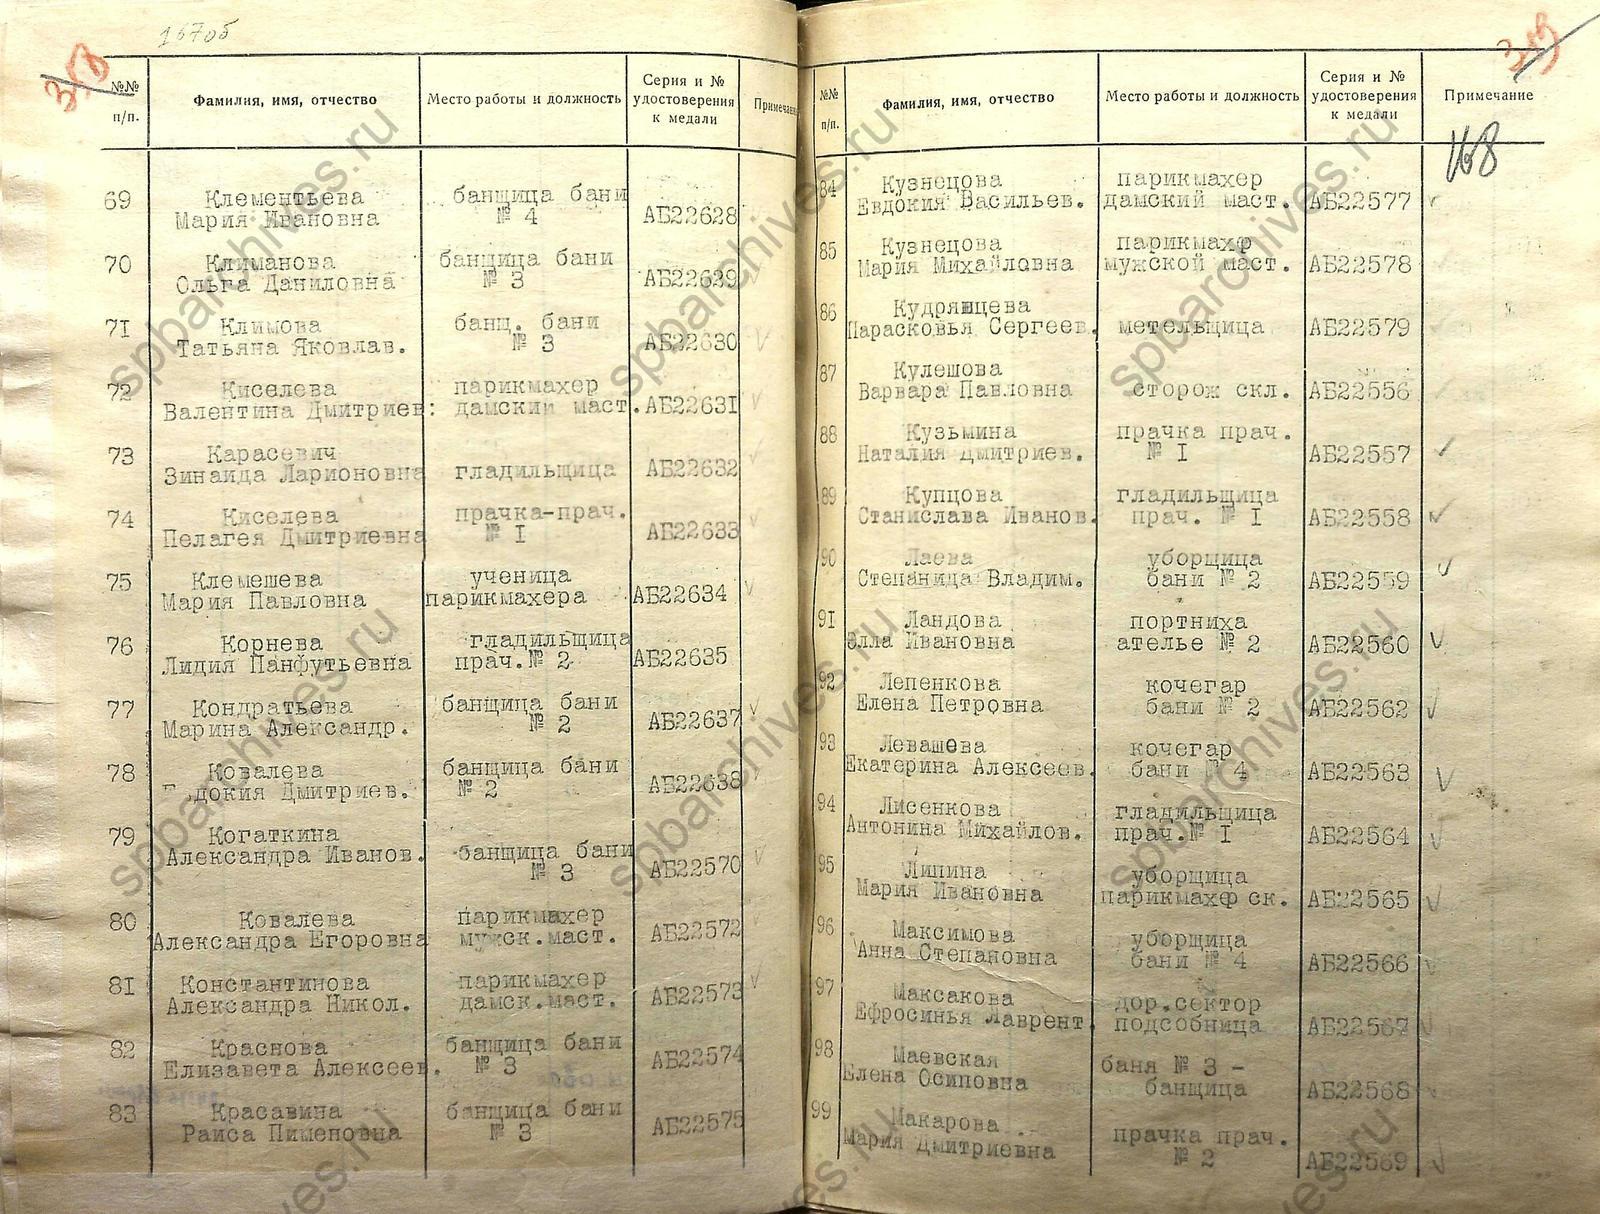 167об
318
№№ п/п.
Фамилия, имя, отчество
Место работы и должность
Серия и № удостоверения к медали
Примечан
69 Клементьева банщица бани
Мария Ивановна № 4 АБ22628
70 Климанова банщица бани
Ольга Даниловна № 3 АБ22629
71 Климова банщ. бани
Татьяна Яковлав. № 3 АБ22630
72 Киселева парикмахер
Валентина Дмитриев: дамский маст. АБ22631
73 Карасевич
Зинаида Ларионовна гладильщица АБ22632
74 Киселева прачка-прач.
Пелагея Дмитриевна № I АБ22633
75 Клемешева ученица
Мария Павловна парикмахера АБ22634
76 Корнева гладильщица
Лидия Панфутьевна прач.№ 2 АБ22635
77 Кондратьева банщица бани
Марина Александр. № 2 АБ22637
78 Ковалева банщица бани
докия Дмитриев. № 2 АБ22638
79 Когаткина
Александра Иванов. банщица бани АБ22570
№ 3
80 Ковалева парикмахер
Александра Егоровна мужск.маст. АБ22572
81 Константинова парикмахер
Александра Никол. дамск.маст. АБ22573
82 Краснова банщица бани
Елизавета Алексеев. № 3 АБ22574
83 Красавина банщица бани
Раиса Пименовна № 3 АБ22575
319
№№ п/п.
Фамилия, имя, отчество
Место работы и должность
Серия и № удостоверения к медали
Примечание
168
84 Кузнецова парикмахер
Евдокия Васильев. дамский маст. АБ22577
85 Кузнецова парикмахр
Мария Михайловна мужской маст. АБ22578
86 Кудряшцева
Парасковья Сергеев. метельщица АБ22579
87 Кулешова
Варвара Павловна сторож скл. АБ22556
88 Кузьмина прачка прач.
Наталия Дмитриев. № I АБ22557
89 Купцова гладильщица
Станислава Иванов. прач. № I АБ22558
90 Лаева уборщица
Степаница Владим. бани № 2 АБ22559
91 Ландова портниха
Элла Ивановна ателье № 2 АБ22560
92 Лепенкова кочегар
Елена Петровна бани № 2 АБ22562
93 Левашова кочегар
Екатерина Алексеев. бани № 4 АБ22563
94 Лисенкова гладильщица
Антонина Михайлов. прач.№ I АБ22564
95 Липина уборщица
Мария Ивановна парикмахр ск. АБ22565
96 Максимова уборщица
Анна Степановна бани № 4 АБ22566
97 Максакова дор.сектор
Ефросинья Лаврент. подсобница АБ22567
98 Маевская баня № 3 -
Елена Осиповна банщица АБ22568
99 Макарова
Мария Дмитриевна прачка прач.
№ 2 АБ22569
spbarchives.ru
spbarchives.ru
spbarchives.ru
spbarchives.ru
spbarchives.ru
spbarchives.ru